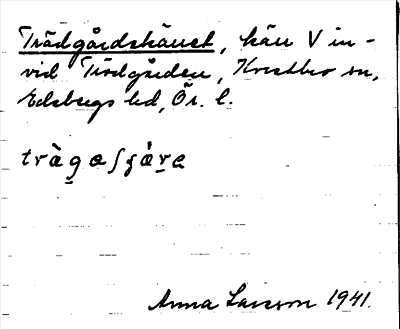 Trädgårdskärret, kärr V in-
vid Trädgården, Kvistbro sn,
Edsbergs hd, Ör. l.
trägaʃɟärə
Anna Larsson 1941.